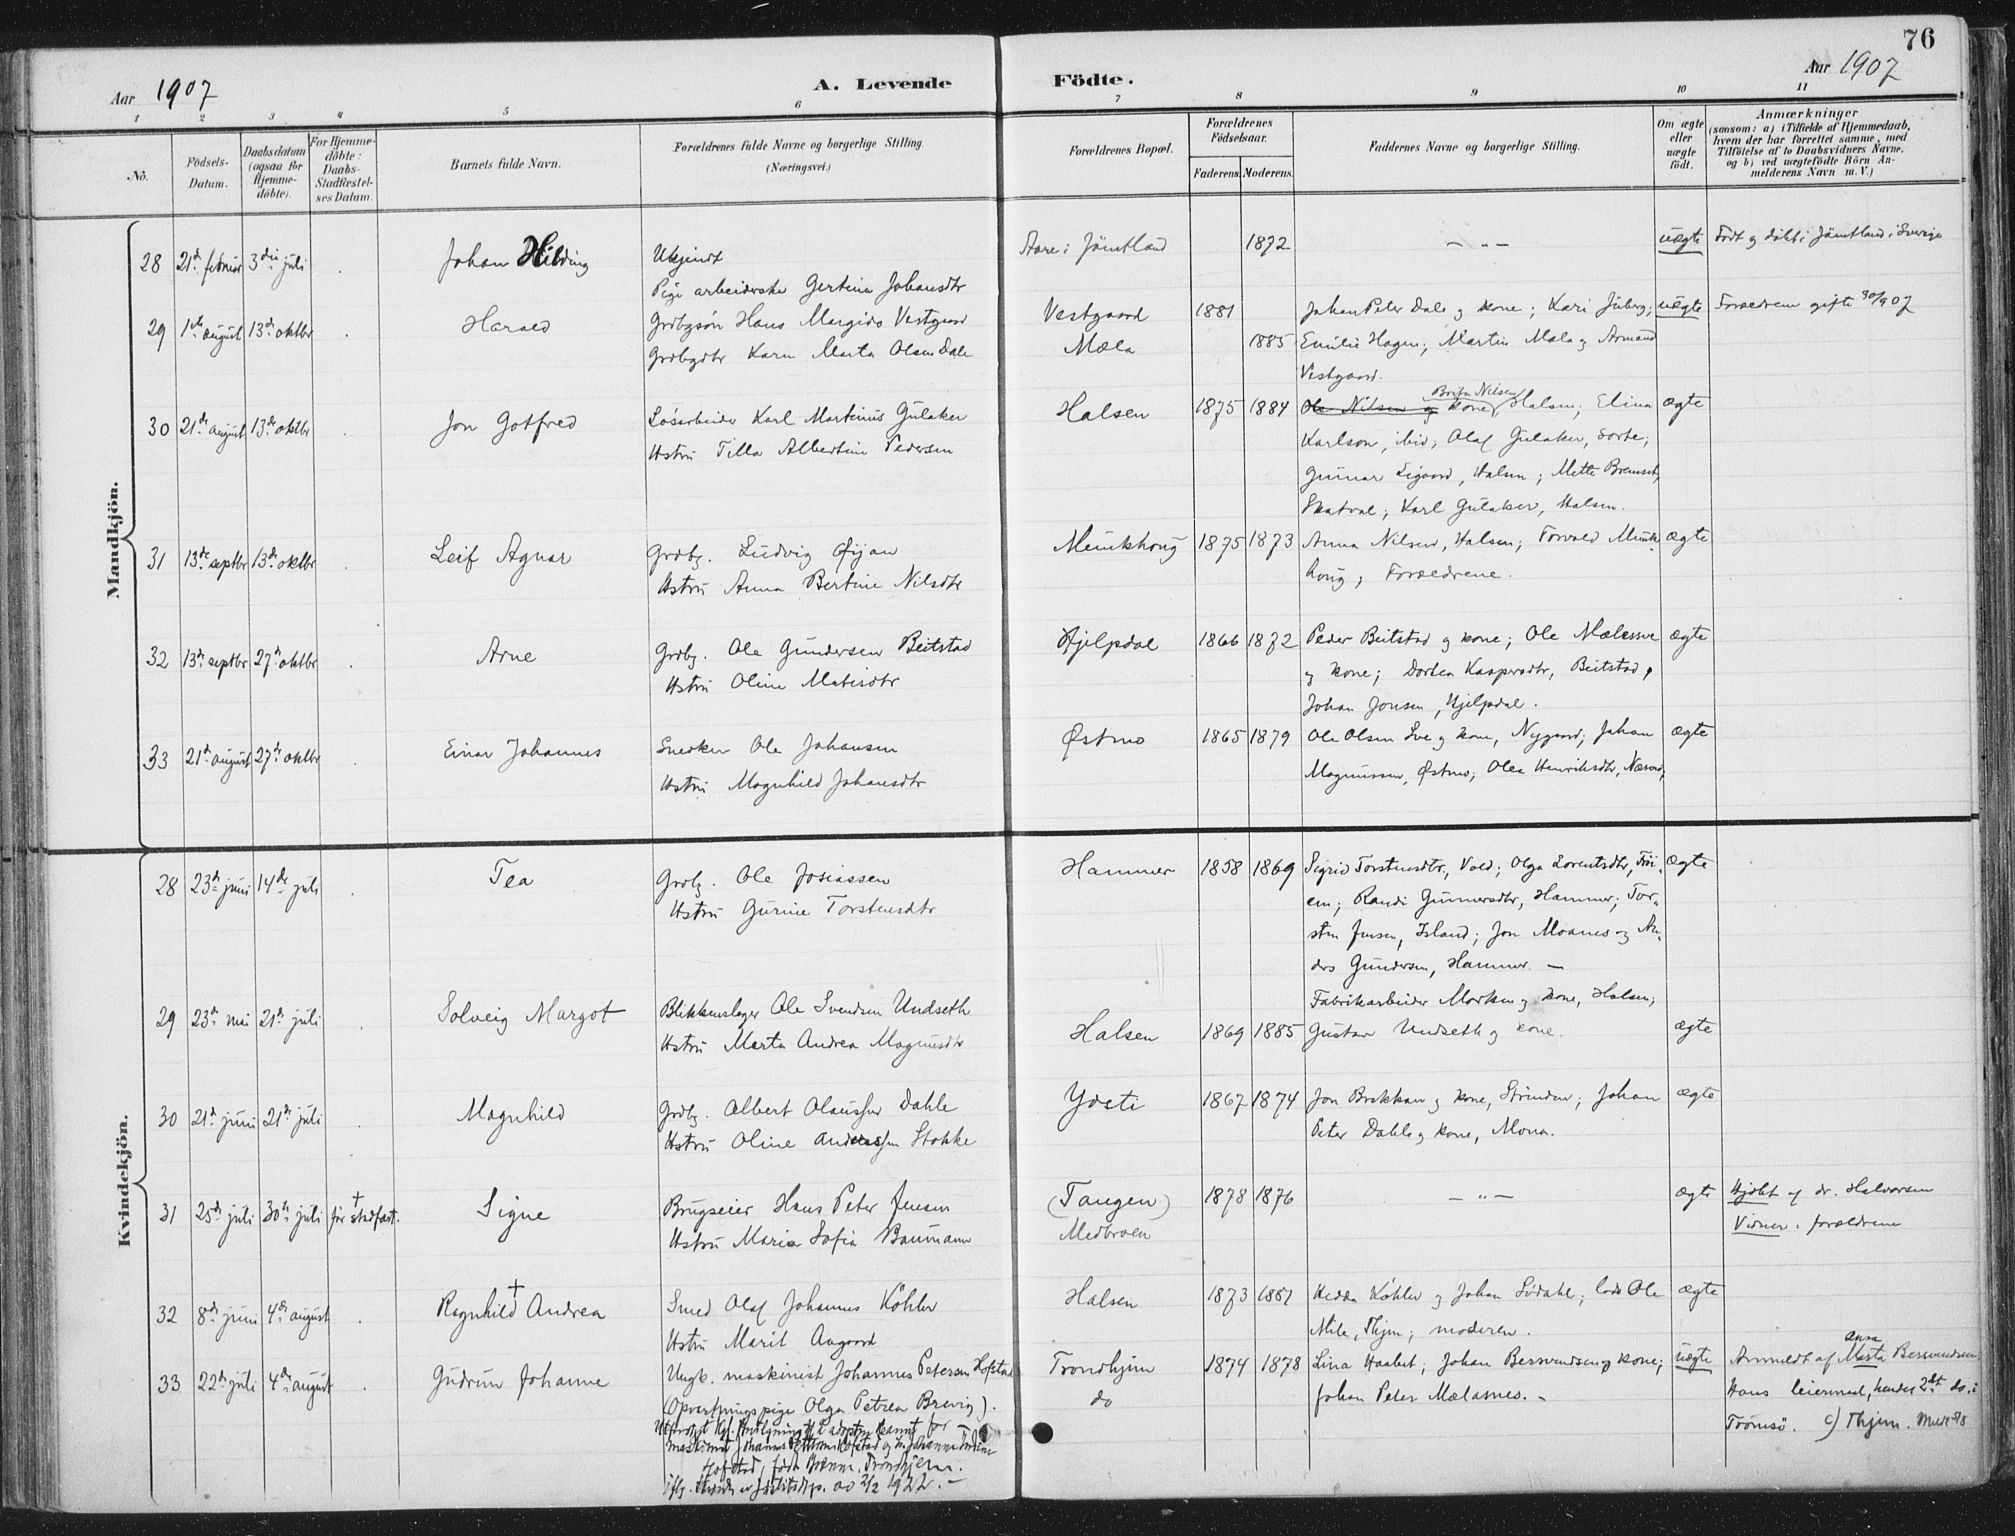 76
Aar 1907
A. Levende Födte.
Aar 1907
1 2 3 4 5 6 7 8 9 10 11
No.
Födsels-Datum.
Daabsdatum (ogsaa for Hjemme-döbte).
For Hjemme-döbte: Daabs-Stadfæstel-ses Datum.
Barnets fulde Navn.
Forældrenes fulde Navne og borgerlige Stilling.
(Næringsvei.)
Forældrenes Bopæl.
Forældrenes Födselsaar.
Faderens. Moderens.
Faddernes Navne og borgerlige Stilling.
Om ægte eller uægte födt.
Anmærkninger
(saasom: a) i Tilfælde af Hjemmedaab,
hvem der har forrettet samme, med
Tilföielse af to Daabsvidners Navne,
og b) ved uægtefödte Börn An-
melderens Navn m. V.)
Mandkjön.
28 21de februar 3die juli . Johan Hilding Ukjendt Aare i Jämtland 1872 — „ — uægte Födt og döbt i Jämtland i Sverige
Pige arbeiderske Gertina Johansdtr
29 1ste august 13de oktbr . Harald Grdbgsön Hans Margido Vestgaard Vestgaard 1881 Johan Peter Dale og kone; Kari Juberg; uægte Forældrene gifte 30/9 07
Grdbgdtr Karen Marta Olsen Dale Mæla 1885 Emilie Hagen; Martin Mæla og Armand
Vestgaard.
30 21de august 13de oktbr . Jon Gotfred Lösarbeider Karl Martinus Gulaker Halsen 1875 1884 Ole Nilsen og kone, Halsen; Elina ægte
Hstru Tilla Albertine Pedersen Karlson, ibid; Olaf Gulaker, Sorte;
Gunnar Eigaard, Halsen; Mette Bremset,
Skatval; Karl Gulaker, Halsen.
31 13de septbr 13de oktbr . Leif Agnar Grdbg. Ludvig Öijan Munkhaug 1875 1873 Anna Nilsen, Halsen; Torvald Munk- ægte
Hstru Anna Bertine Nilsdtr haug, Forældrene.
32 13de septbr 27de oktbr . Arne Grdbg. Ole Gundersen Beitstad Hjelpdal 1866 1872 Peder Beitstad og kone; Ole Mælessve ægte
Hstru Oline Matisdtr og kone; Dortea Kaspersdtr, Beitstad,
Johan Jonsen, Hjelpdal.
33 21de august 27de oktbr . Einar Johannes Snedker Ole Johansen Østmo 1865 1879 Ole Olsen Sve og kone, Nygaard; Johan ægte
Hstru Magnhild Johansdtr Magnussen, Østmo; Olea Henriksdtr,
Kvindekjön.
28 23de juni 14de juli . Tea Grdbg. Ole Josiassen Hammer 1858 1869 Sigrid Torstensdtr, Vold; Olga Lorentsdtr, ægte
Hstru Gurine Torstensdtr em; Randi Gunnersdtr, Hammer; Tor-
sten Jensen, Island; Jon Moanes og An-
ders Gundersen, Hammer. —
Fabrikarbeider Morken og kone, Halsen;
29 23de mei 21de juli . Solveig Margot Blikkenslager Ole Svendsen Undseth Halsen 1869 1885 Gustav Undseth og kone. ægte
Hstru Marta Andrea Magnusdtr
30 21de juni 21de juli . Magnhild Grdbg. Albert Olaussen Dahle Ydsti 1867 1874 Jon Brekkan og kone, Strinden; Johan ægte
Hstru Oline Anderssen Stokke Peter Dahle og kone, Mona.
31 25de juli 30te juli † för stadfæst. Signe Brugseier Hans Peter Jensen (Tangen) 1878 1876 — „ — ægte Hjdbt af dr. Halvorsen
Hstru Maria Sofia Baumann Medbroen Vidner: forældrene
32 8de juni 4de august . Ragnhild † Andrea Smed Olaf Johannes Köhler Halsen 1873 1881 Hedda Köhler og Johan Lödahl; lods Ole ægte
Hstru Marit Aagaard Mile, Thjem; moderen.
33 22de juli 4de august . Gudrun Johanne Ungk. maskinist Johannes Petersen Hofstad Trondhjem 1874 1878 Lina Haabet; Johan Bersvendsen og kone; uægte Anmeldt af Anna Marta Bersvendsen
(Opvartningspige Olga Petrea Brevig). do Johan Peter Mælasnes. — Hans leiermaal, hendes 2det do. i
Tromsö. c) Thjem.
Hofstad, Trondhjem.
2/2 1922. —